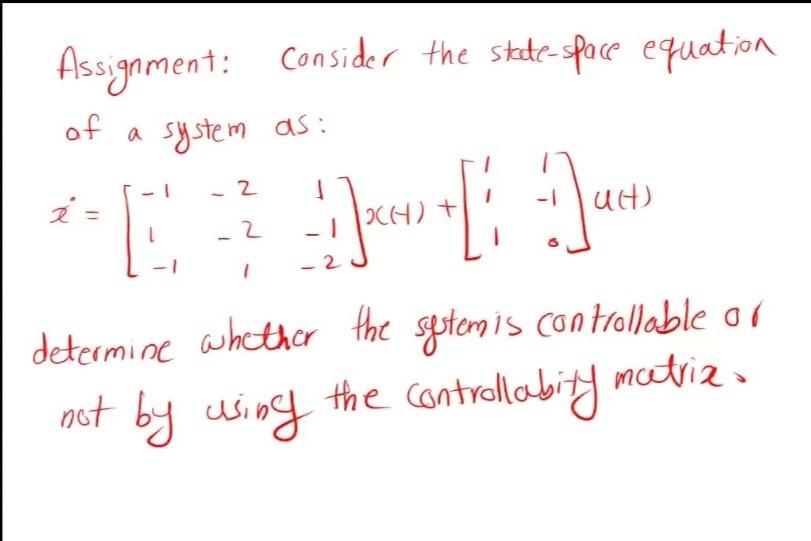 Assignment: Consider the state-space equation
of a system as:
ẋ = [ -1 -2 1 ; 1 -2 -1 ; -1 1 -2 ] x(t) + [ 1 1 ; 1 -1 ; 1 0 ] u(t)
determine whether the system is controllable or
not by using the controllabity matrix.